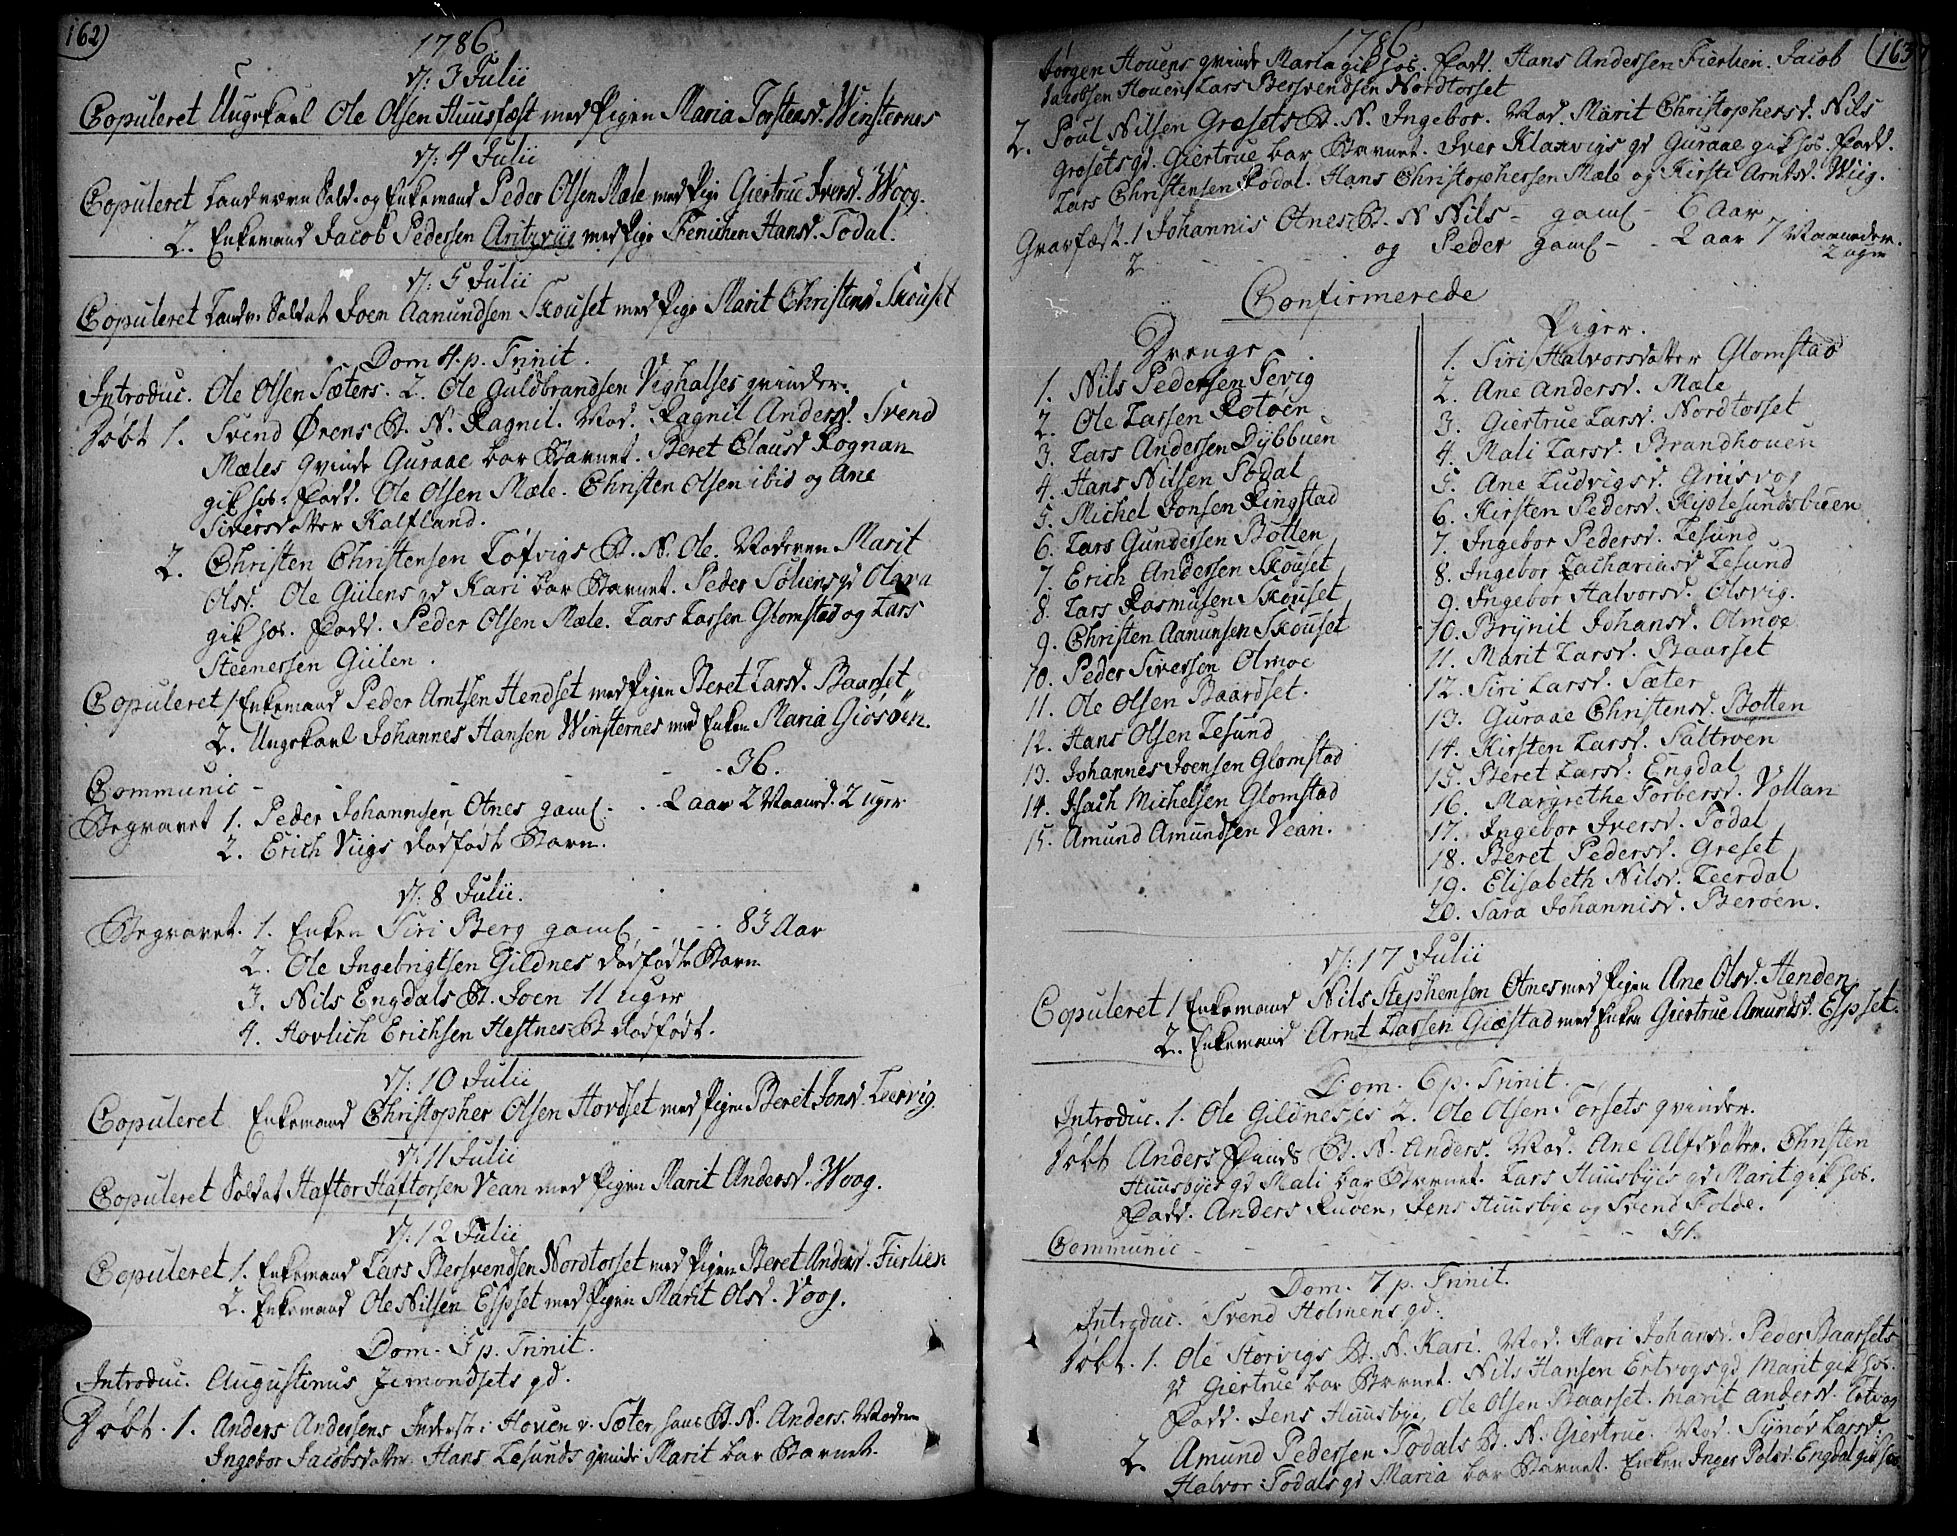 162)
1786
d: 3 Julii
Copuleret Ungekarl Ole Olsen Huusfæst med Pigen Maria Torstensd. Winsternes
d: 4 Julii
Copuleret Landværn Sold. og Enkemand Peder Olsen Mæle med Pige Giertrue Iversd. Woog.
2. Enkemand Jacob Pedersen Aritzviig med Pige Fenichen Hansd. Todal.
d: 5 Julii
Copuleret Landv. Soldat Joen Aamundsen Skouset med Pige Marit Christensd Skouset
Dom 4. p. Trinit.
Introduc. Ole Olsen Sæters. 2. Ole Guldbrandsen Vighalses qvinder.
Døbt 1. Svend Ørens B. N. Ragnil. Mod. Ragnil Andersd. Svend
Mæles qvinde Guraae bar Barnet. Beret Clausd Rognan
gik hos. Fadd. Ole Olsen Mæle. Christen Olsen ibid og Ane
Siversdatter Kalfland.
2. Christen Christensen Løfvigs B. N. Ole. Moderen Marit
Olsd. Ole Giilens qd Kari bar Barnet. Peder Søliens qd Olava
gik hos. Fadd. Peder Olsen Mæle. Lars Larsen Glomstad og Lars
Steenersen Giilen.
Copuleret 1 Enkemand Peder Arntsen Hendset med Pigen Beret Larsd. Baarset
2. Ungekarl Johannes Hansen Winsternes med Enken Maria Giøsøen.
Communic - - - 36.
Begravet 1. Peder Johannsen Otnes gaml. - 2 aar 2 Maaned. 2 uger
2. Erich Viigs dødfødt Barn.
d: 8 Julii.
Begravet. 1. Enken Siri Berg gaml - - 83 Aar
2. Ole Ingebrigtsen Gildnes dødfødt Barn
3. Nils Engdals B. Joen 11 uger
4. Hovlich Erichsen Hestnes B dødfødt.
d: 10 Julii
Copuleret Enkemand Christopher Olsen Hordset med Pigen Beret Jonsd. Leervig.
d: 11 Julii
Copuleret Soldat Haftor Haftorsen Vean med Pigen Marit Andersd. Woog.
d: 12 Julii
Copuleret 1. Enkemand Lars Bersvendsen Nordtorset med Pigen Beret Andersd. Fiirlien
2. Enkemand Ole Nilsen Espset med Pigen Marit Olsd. Voog.
Dom. 5 p. Trinit.
Introduc. Augustinus Jemondsets qd.
Døbt. 1. Anders Andersens Inderst: Houen v. Sæter hans B. N. Anders. Modren
Ingebor Jacobsdatter. Hans Lesunds qvinde Marit bar Barnet.
1786
163
Jørgen Houens qvinde Maria gik hos. Fadd. Hans Andersen Fierlien. Jacob
Jacobsen Houen, Lars Bersvendsen Nordtorset
2. Poul Nilsen Græsets B. N. Ingebor. Mod. Marit Christophersd. Nils
Græsets qd. Giertrue bar Barnet. Iver Klaxvigs qd Guraae gik hos. Fadd.
Lars Christensen Rodal. Hans Christophersen Mæle og Kirsti Arntsd. Wiig.
Gravfæst. 1 Johannis Otnes B. N Nils - gaml - 6 Aar
2 - - - og Peder gaml - - 2 aar 7 Maaneder.
2 uger
Confirmerede
Drenge
1. Nils Pedersen Tevig
2. Ole Larsen Rotøen
3. Lars Andersen Dybbuen
4. Hans Nilsen Todal
5. Michel Jonsen Ringstad
6. Lars Gundersen Botten
7. Erich Andersen Skouset
8. Lars Rasmusen Skouset
9. Christen Aamunsen Skouset
10. Peder Siversen Olmoe
11. Ole Olsen Baardset.
12. Hans Olsen Lesund
13. Johannes Joensen Glomstad
14. Isach Michelsen Glomstad
15. Amund Amundsen Vean.
Piger.
1. Siri Halvorsdatter Glomstad
2. Ane Andersd. Mæle
3. Giertrue Larsd. Nordtorset
4. Mali Larsd. Brandhouen
5. Ane Ludvigsd. Gruisvog
6. Kirsten Pedersd. Kiølesundsbuen
7. Ingebor Pedersd. Lesund
8. Ingebor Zachariasd Lesund
9. Ingebor Halvorsd. Olsvig.
10. Brynit Johansd. Olmoe
11. Marit Larsd. Baarset
12. Siri Larsd. Sæter
13. Guraae Christensd. Botten
14. Kirsten Larsd. Saltrøen
15. Beret Larsd. Engdal
16. Margrethe Torbersd. Vollan
17. Ingebor Iversd. Todal
18. Beret Pedersd. Greset
19. Elisabeth Nilsd. Leerdal
20. Sara Johannisd. Berøen.
d: 17 Julii
Copuleret 1 Enkemand Nils Stephensen Otnes med Pigen Ane Olsd. Henden
2. Enkemand Arnt Larsen Giæstad med Enken Giertrue Amundsd. Espset.
Dom. 6 p. Trinit.
Introduc. 1. Ole Gildneses 2. Ole Olsen Torsets qvinder.
Døbt Anders Punds B. N. Anders. Mod. Ane Alfsdatter. Christen
Huusbyes qd Mali bar Barnet. Lars Huusbyes qd Marit gik hos.
Fadd. Anders Ruøen, Jens Huusbye og Svend Folde.
Communic - - - - - 51.
Dom. 7 p. Trinit.
Introduc. Svend Holmens qd.
Døbt. 1. Ole Storvigs B. N. Kari. Mod. Kari Johansd. Peder Baarsets
qd Giertrue bar Barnet. Nils Hansen Ertvogs qd Marit gik hos.
Fadd. Jens Huusbye, Ole Olsen Baarset. Marit Andersd. Ertvog
2. Amund Pedersen Todals B. N. Giertrue. Mod. Synør Larsd.
Halvor Todals qd Maria bar Barnet. Enken Inger Polsd. Engdal gik hos